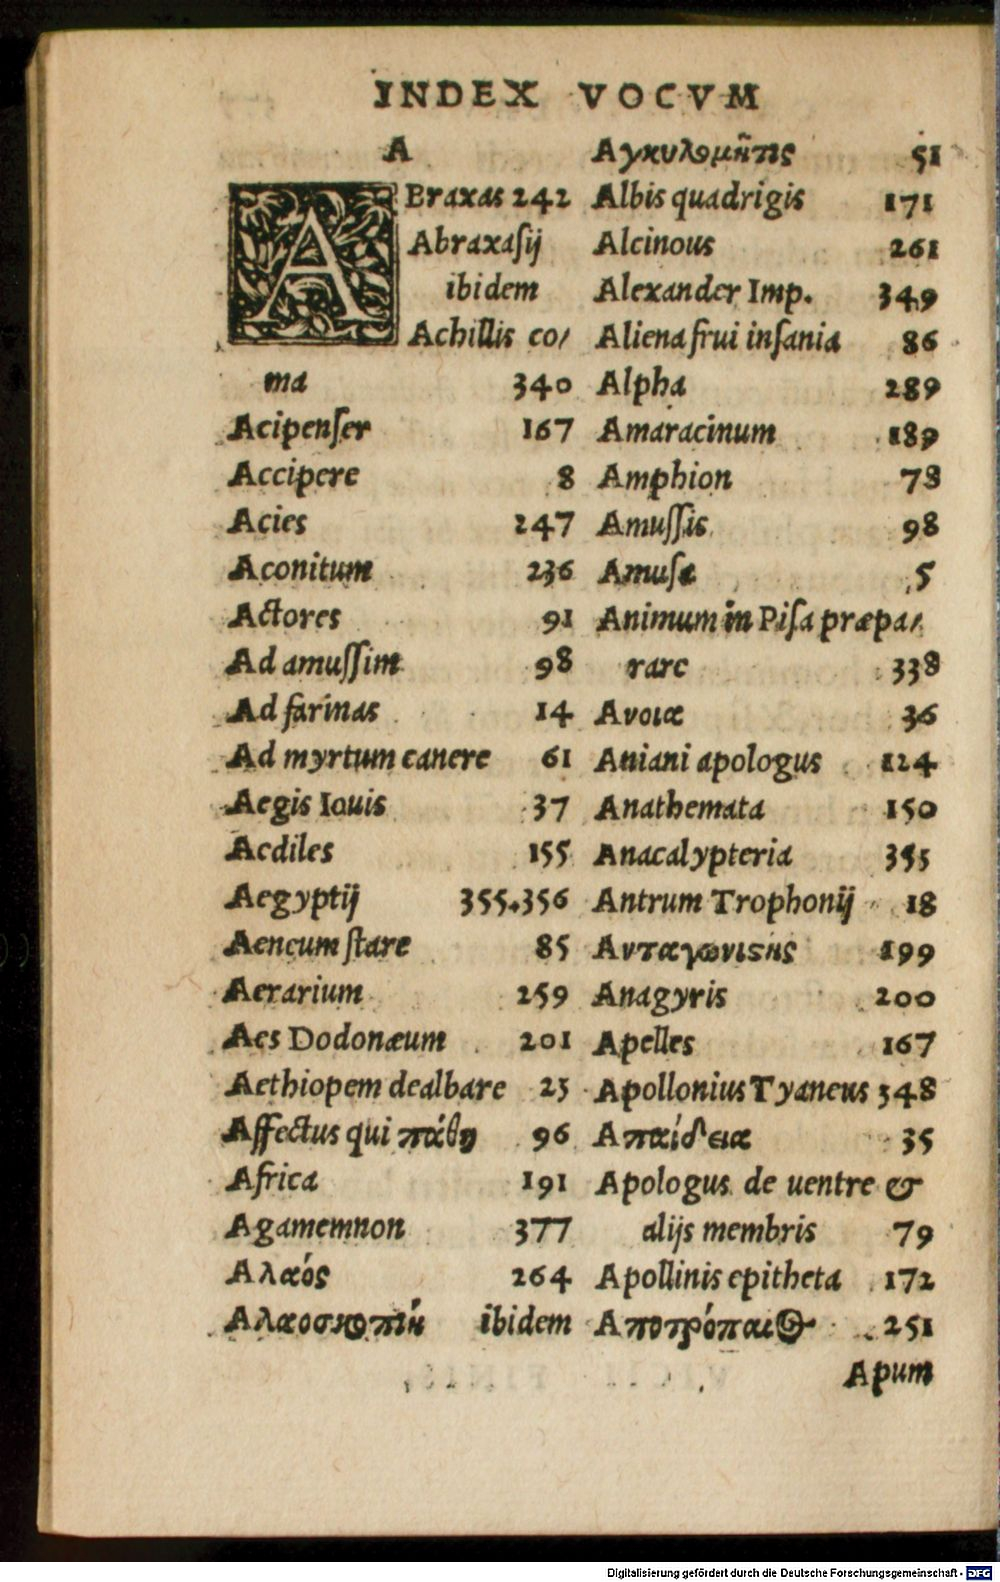 INDEX VOCVM
A
ABraxas 242
Abraxaſij
ibidem
Achillis co/
ma 340
Acipenſer 167
Accipere 8
Acies 247
Aconitum 236
Actores 91
Ad amuſſim 98
Ad farinas 14
Ad myrtum canere 61
Aegis Iouis 37
Aediles 155
Aegyptij 355.356
Aeneum ſtare 85
Aerarium 259
Aes Dodonæum 201
Aethiopem dealbare 23
Affectus qui πάθη 96
Africa 191
Agamemnon 377
Αλαός 264
Αλαοσκοπιή ibidem
Αγκυλομῆτις 51
Albis quadrigis 171
Alcinous 261
Alexander Imp. 349
Aliena frui inſania 86
Alpha 289
Amaracinum 189
Amphion 78
Amuſſis 98
Amuſæ 5
Animum in Piſa præpa/
rare 338
Ανοια 36
Aniani apologus 124
Anathemata 150
Anacalypteria 355
Antrum Trophonij 18
Ανταγωνιϛης 199
Anagyris 200
Apelles 167
Apollonius Tyaneus 348
Απαίδεια 35
Apologus de uentre &
alijs membris 79
Apollinis epitheta 172
Αποτρόπαιος 251
Apum
Digitalisierung gefördert durch die Deutsche Forschungsgemeinschaft - DFG